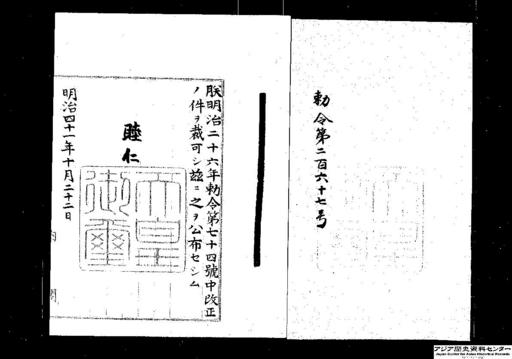 勅令第二百六十七号
朕明治二十六年勅令第七十四號中改正
ノ件ヲ裁可シ茲ニ之ヲ公布セシム
睦仁
天皇
御璽
明治四十一年十月二十二日
内 閣
アジア歴史資料センター
Japan Center for Asian Historical Records